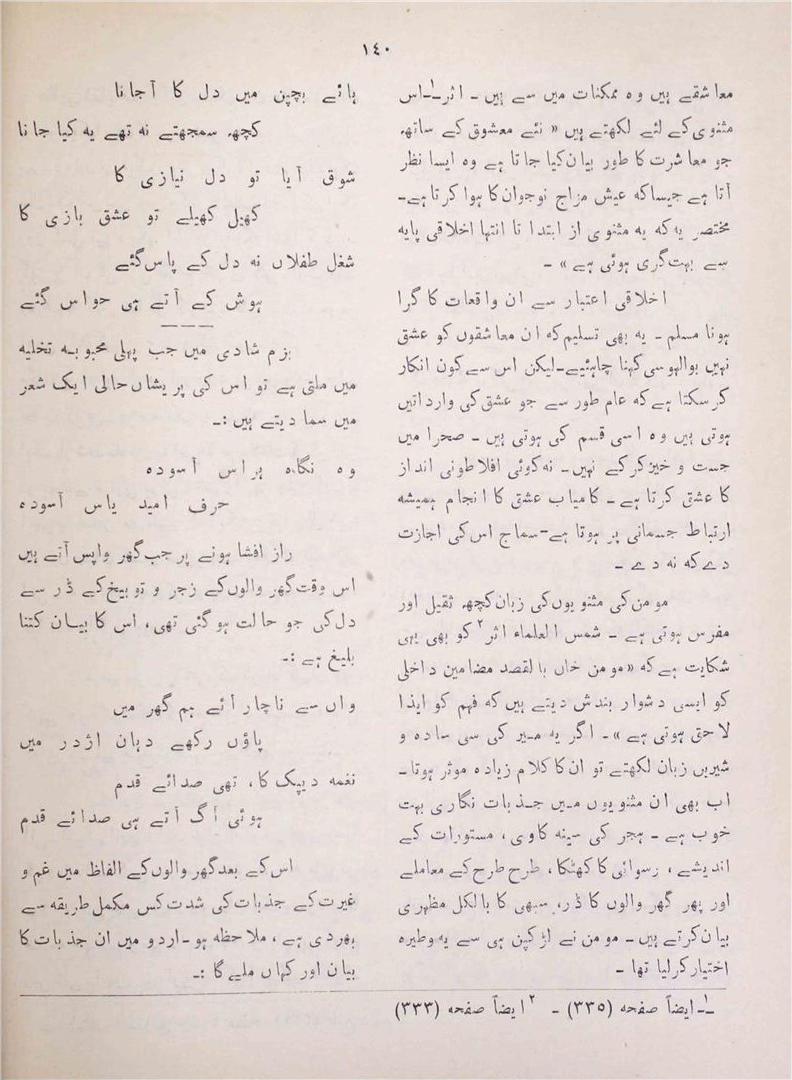 ١٤٠
معاشقے ہیں وہ ممکنات میں سے ہیں ـ اثر١ـ اس
مثنوی کے لئے لکھتے ہیں « نئے معشوق کے ساتھ
جو معاشرت کا طور بیان کیا جاتا ہے وہ ایسا نظر
آتا ہے جیسا کہ عیش مزاج نوجوان کا ہوا کرتا ہے ـ
مختصر یہ کہ یہ مثنوی از ابتدا تا انتہا اخلاقی پایہ
سے بہت گری ہوئی ہے » ـ
اخلاقی اعتبار سے ان واقعات کا گرا
ہونا مسلم ـ یہ بھی تسلیم کہ ان معاشقوں کو عشق
نہیں بوالہوسی کہنا چاہئیے ـ لیکن اس سے کون انکار
کر سکتا ہے کہ عام طور سے جو عشق کی وارداتیں
ہوتی ہیں وہ اسی قسم کی ہوتی ہیں ـ صحرا میں
جست و خیز کرکے نہیں ـ نہ کوئی افلاطونی انداز
کا عشق کرتا ہے ـ کامیاب عشق کا انجام ہمیشہ
ارتباط جسمانی پر ہوتا ہے ـ سماج اس کی اجازت
دے کہ نہ دے ـ
مومن کی مثنویوں کی زبان کچھ ثقیل اور
مفرس ہوتی ہے ـ شمس العلماء اثر٢ کو بھی یہی
شکایت ہے کہ « مومن خاں بالقصد مضامین داخلی
کو ایسی دشوار بندش دیتے ہیں کہ فہم کو ایذا
لاحق ہوتی ہے » ـ اگر یہ میر کی سی سادہ و
شیریں زبان لکھتے تو ان کا کلام زیادہ موثر ہوتا ـ
اب بھی ان مثنویوں میں جذبات نگاری بہت
خوب ہے ـ ہجر کی سینہ کاوی، مستورات کے
اندیشے، رسوائی کا کھٹکا، طرح طرح کے معاملے
اور پھر گھر والوں کا ڈر، سبھی کا بالکل مظہری
بیان کرتے ہیں ـ مومن نے لڑکپن ہی سے یہ وطیرہ
اختیار کر لیا تھا ـ
ہائے بچپن میں دل کا آجانا
کچھ سمجھتے نہ تھے پہ کیا جانا
شوق آیا تو دل نیازی کا
کھیل کھیلے تو عشق بازی کا
شغل طفلاں نہ دل کے پاس گئے
ہوش کے آتے ہی حواس گئے
بزم شادی میں جب پہلی محبوبہ تخلیہ
میں ملتی ہے تو اس کی پریشاں حالی ایک شعر
میں سما دیتے ہیں :ـ
وہ نگاہ ہراس آسودہ
حرف امید یاس آسودہ
راز افشا ہونے پر جب گھر واپس آتے ہیں
اس وقت گھر والوں کے زجر و توبیخ کے ڈر سے
دل کی جو حالت ہو گئی تھی، اس کا بیان کتنا
بلیغ ہے :ـ
واں سے ناچار آئے ہم گھر میں
پاؤں رکھے دہان اژدر میں
نغمہ دیپک کا، تھی صدائے قدم
ہوئی آگ آتے ہی صدائے قدم
اس کے بعد گھر والوں کے الفاظ میں غم و
غیرت کے جذبات کی شدت کس مکمل طریقہ سے
بھر دی ہے، ملاحظہ ہو ـ اردو میں ان جذبات کا
بیان اور کہاں ملے گا :ـ
١ـ ایضاً صفحہ (٣٣٥) ـ ٢ ایضاً صفحہ (٣٣٣)